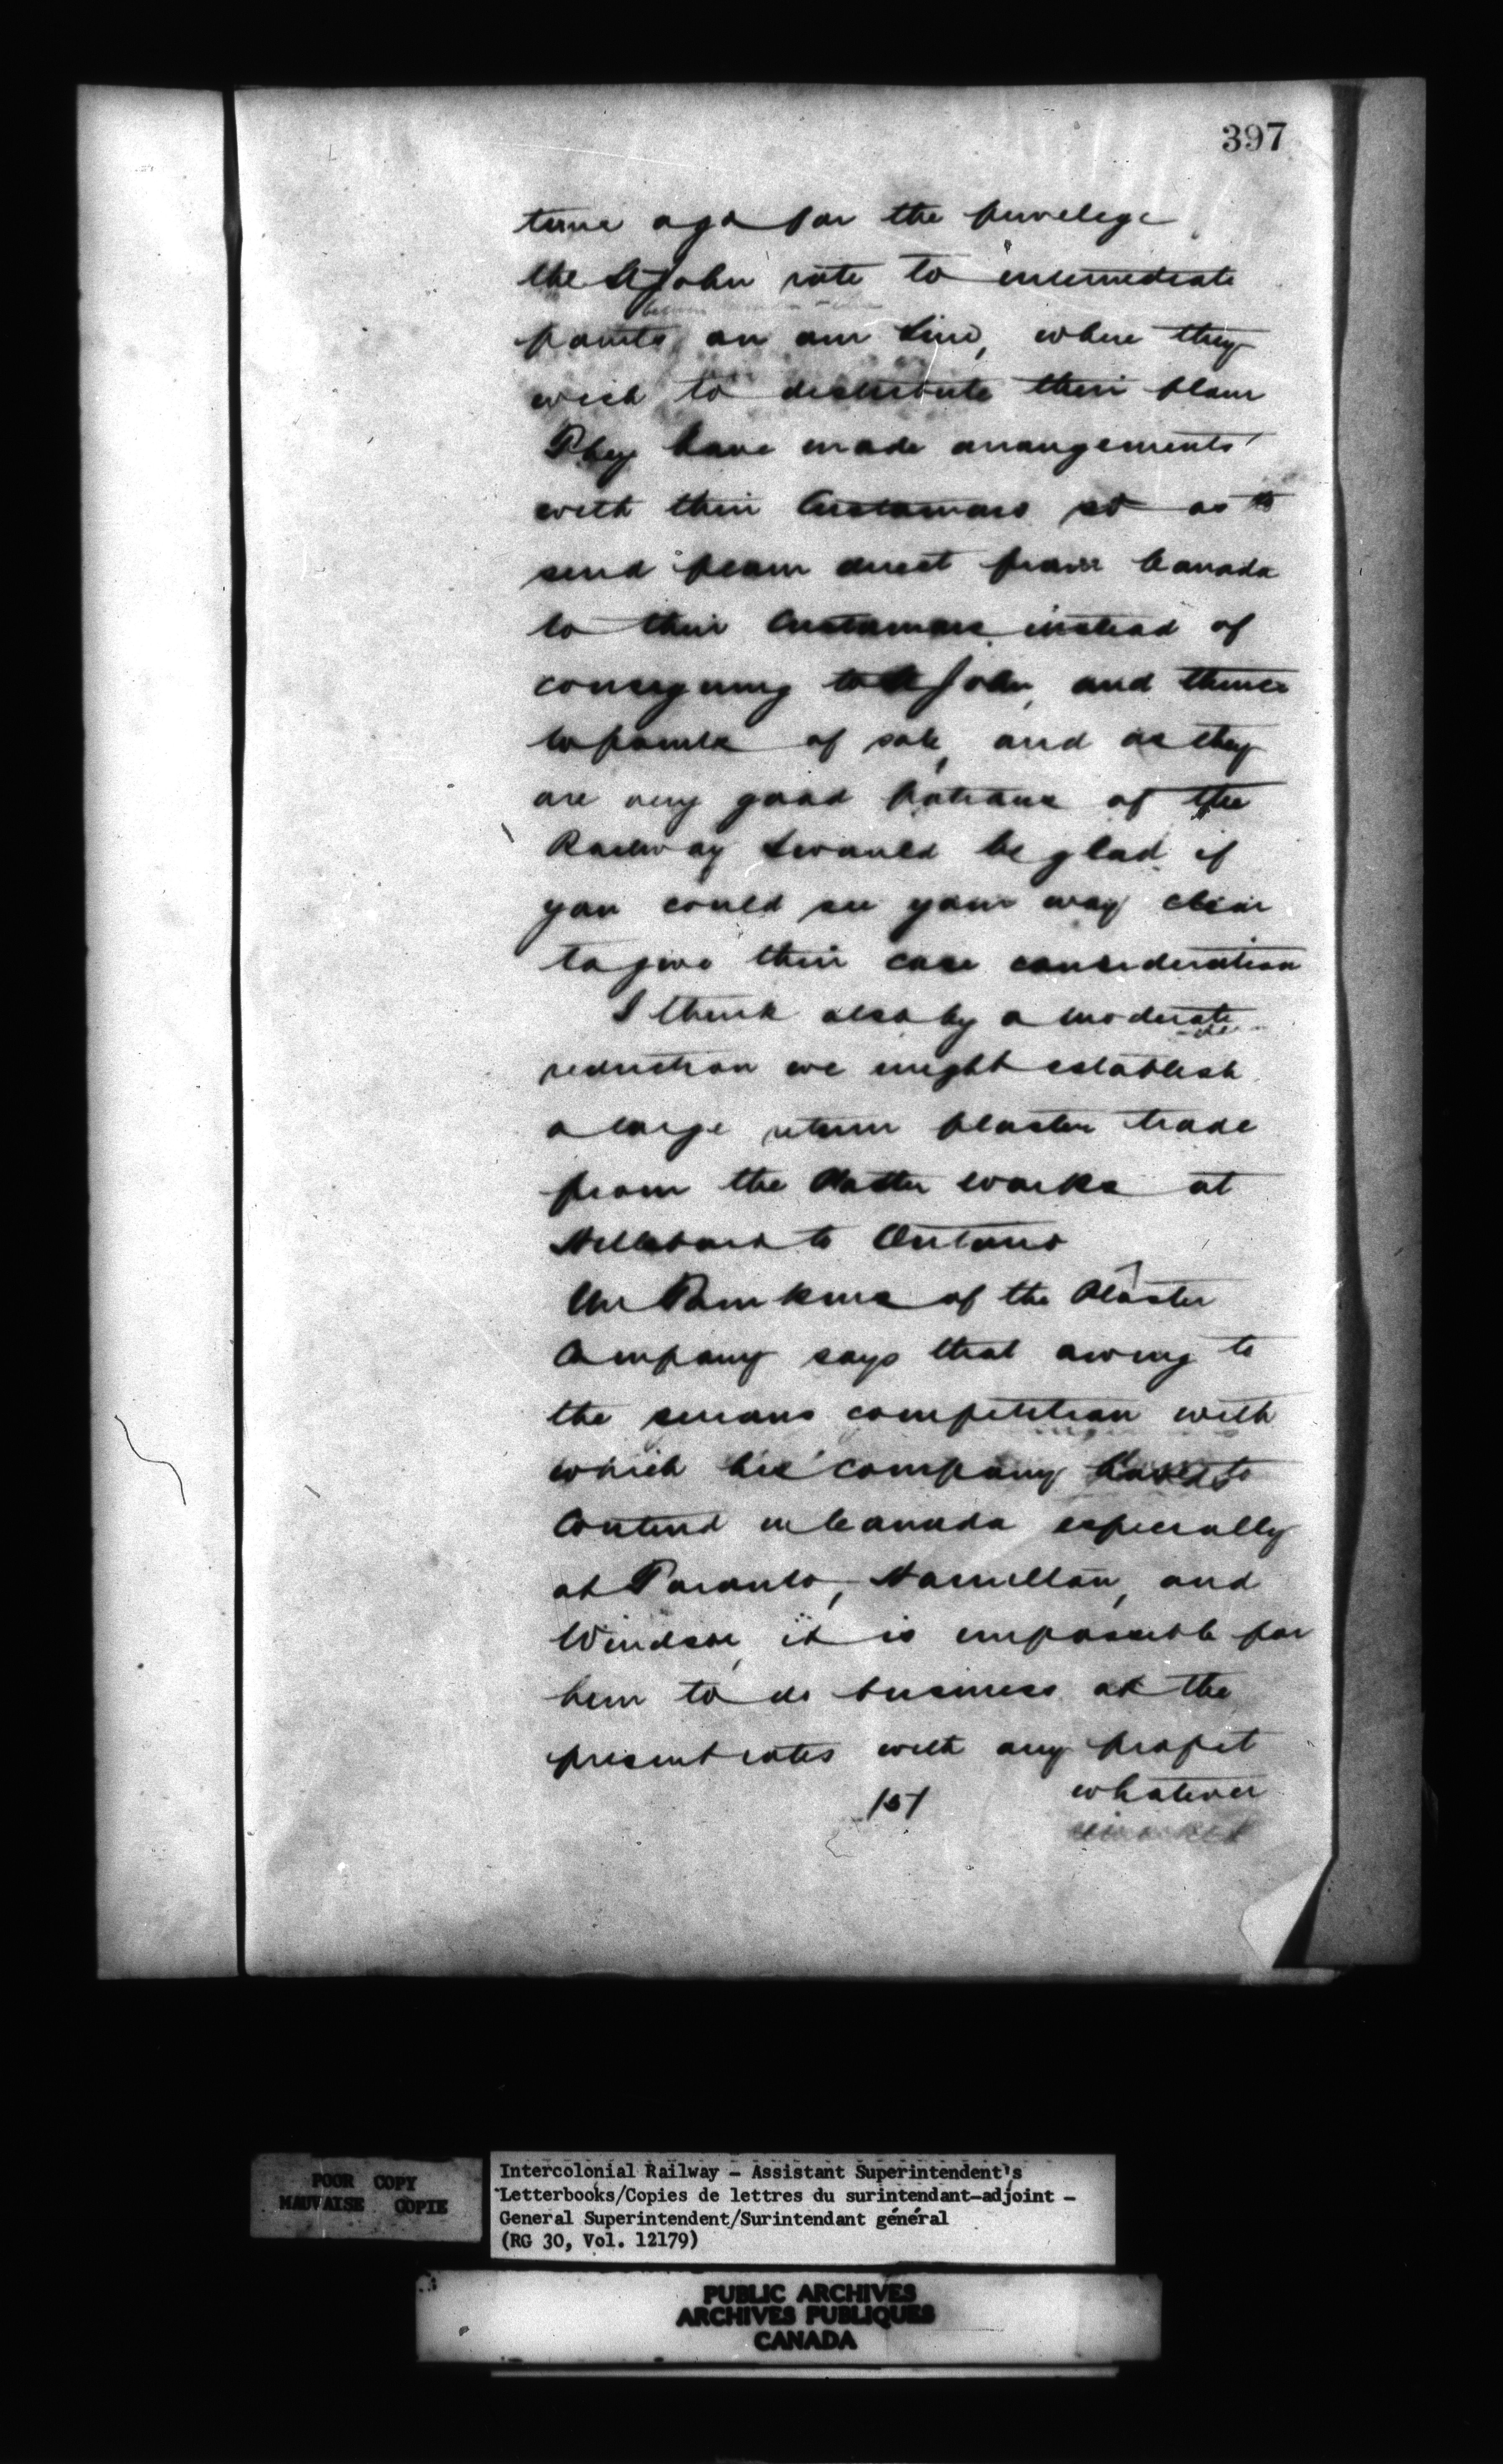 397
time ago for the privelege
the St John rate to intermediate
points on our Line, where they
wish to distribute their flour
They have made arrangements
with their Customers so as to
send flour direct from Canada
to their Customers instead of
consigning to St John, and thence
to points of sale, and as they
are very good patrons of the
Railway I would be glad if
you could see your way clear
to give their case consideration
I think also by a moderate
reduction we might establish
a large return plaster trade
from the Plaster works at
Hillsboro to Ontario
Mr Tomkins of the Plaster
Company says that owing to
the serious competition with
which his company has to
Contend in Canada especially
at Toronto, Hamilton, and
Windsor, it is impossible for
him to do business at the
present rates with any profit
whatever
POOR COPY
MAUVAISE COPIE
Intercolonial Railway - Assistant Superintendent's
Letterbooks/Copies de lettres du surintendant-adjoint -
General Superintendent/Surintendant général
(RG 30, Vol. 12179)
PUBLIC ARCHIVES
ARCHIVES PUBLIQUES
CANADA